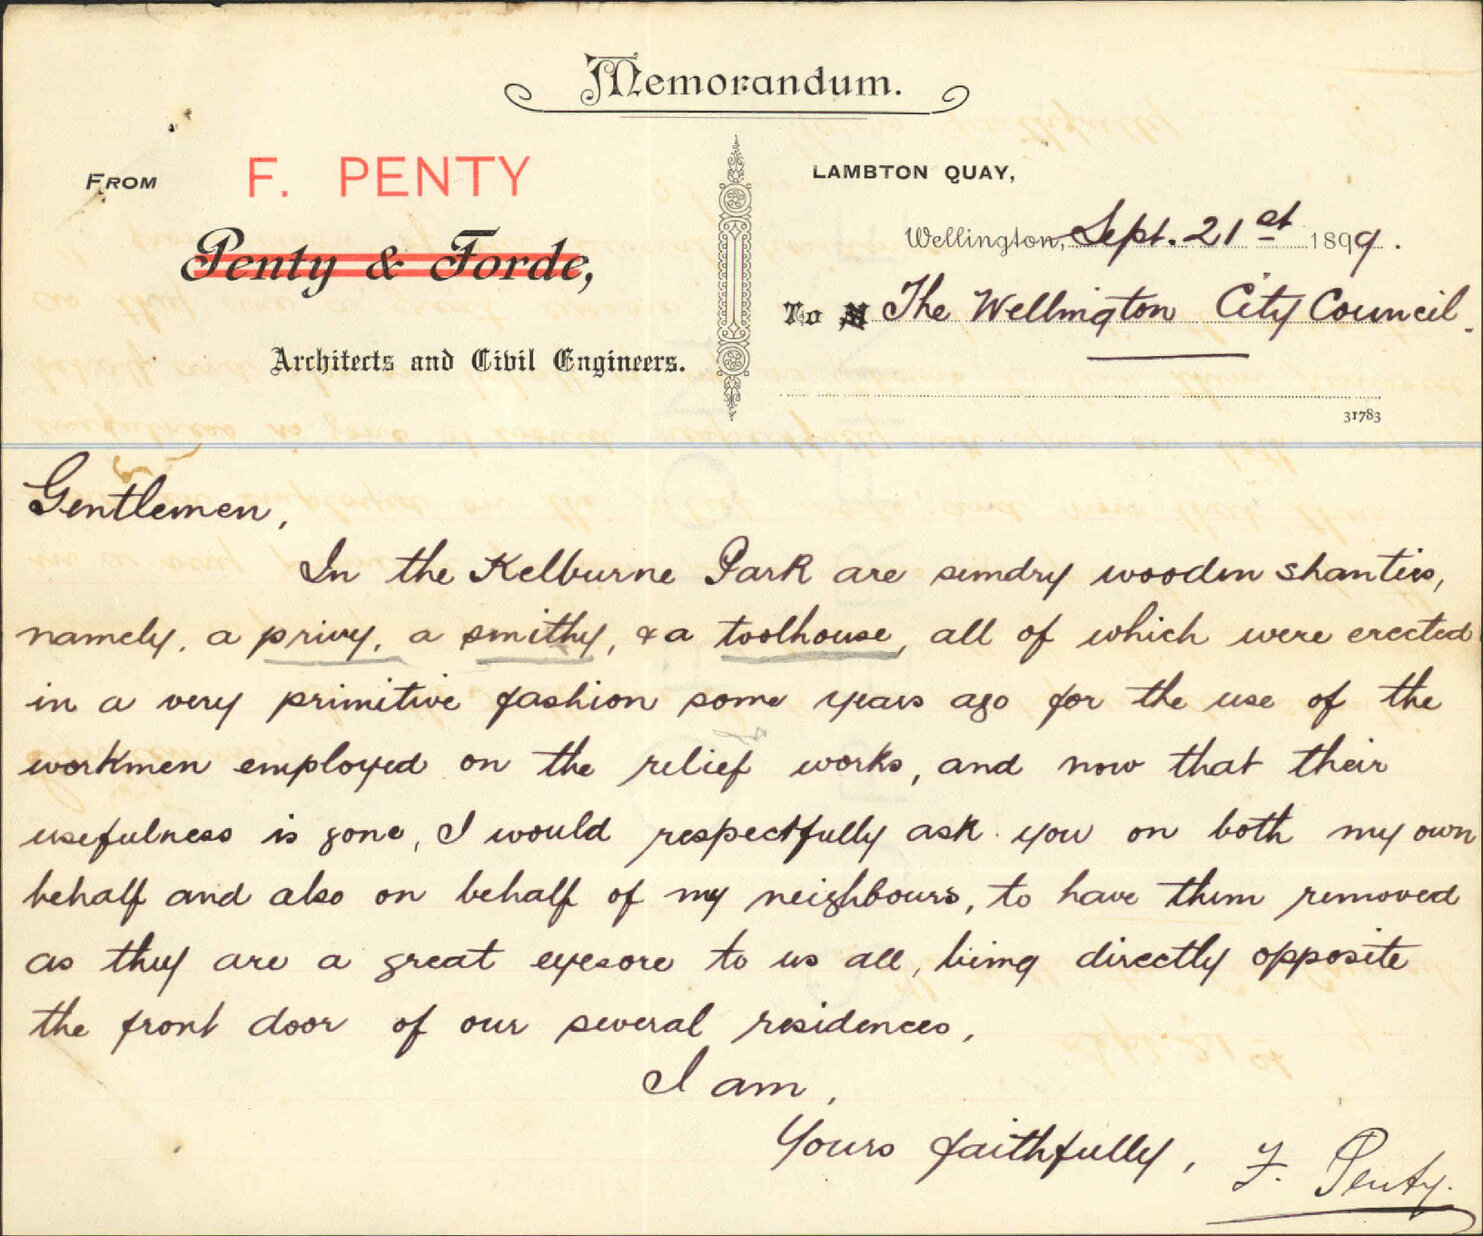 Memorandum.
FROM F. PENTY
Penty & Forde,
Architects and Civil Engineers.
LAMBTON QUAY,
Wellington, Sept. 21st 1899.
To M The Wellington City Council.
31783
Gentlemen,
In the Kelburne Park are sundry wooden shanties,
namely, a privy, a smithy, & a toolhouse, all of which were erected
in a very primitive fashion some years ago for the use of the
workmen employed on the relief works, and now that their
usefulness is gone, I would respectfully ask you on both my own
behalf and also on behalf of my neighbours, to have them removed
as they are a great eyesore to us all, being directly opposite
the front door of our several residences,
I am,
Yours faithfully, F. Penty.